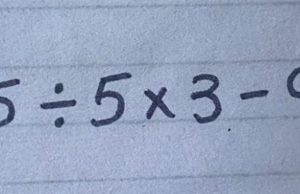 5 ÷ 5 × 3 -